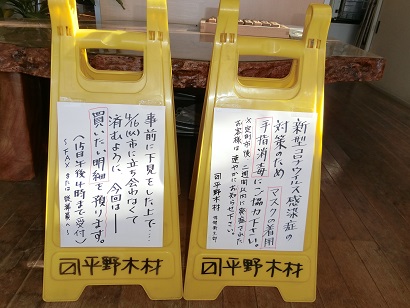 新型コロナウイルス感染症の
対策のため マスクの着用
手指消毒にご協力下さい。
お客様は速やかにお知らせ下さい。
平野木材
平野木材
事前に下見をした上で…
4/16(火)市に立ち会わなくて
済むように 今回は
買いたい明細を預ります。
〈15日午後4時まで受付〉
平野木材